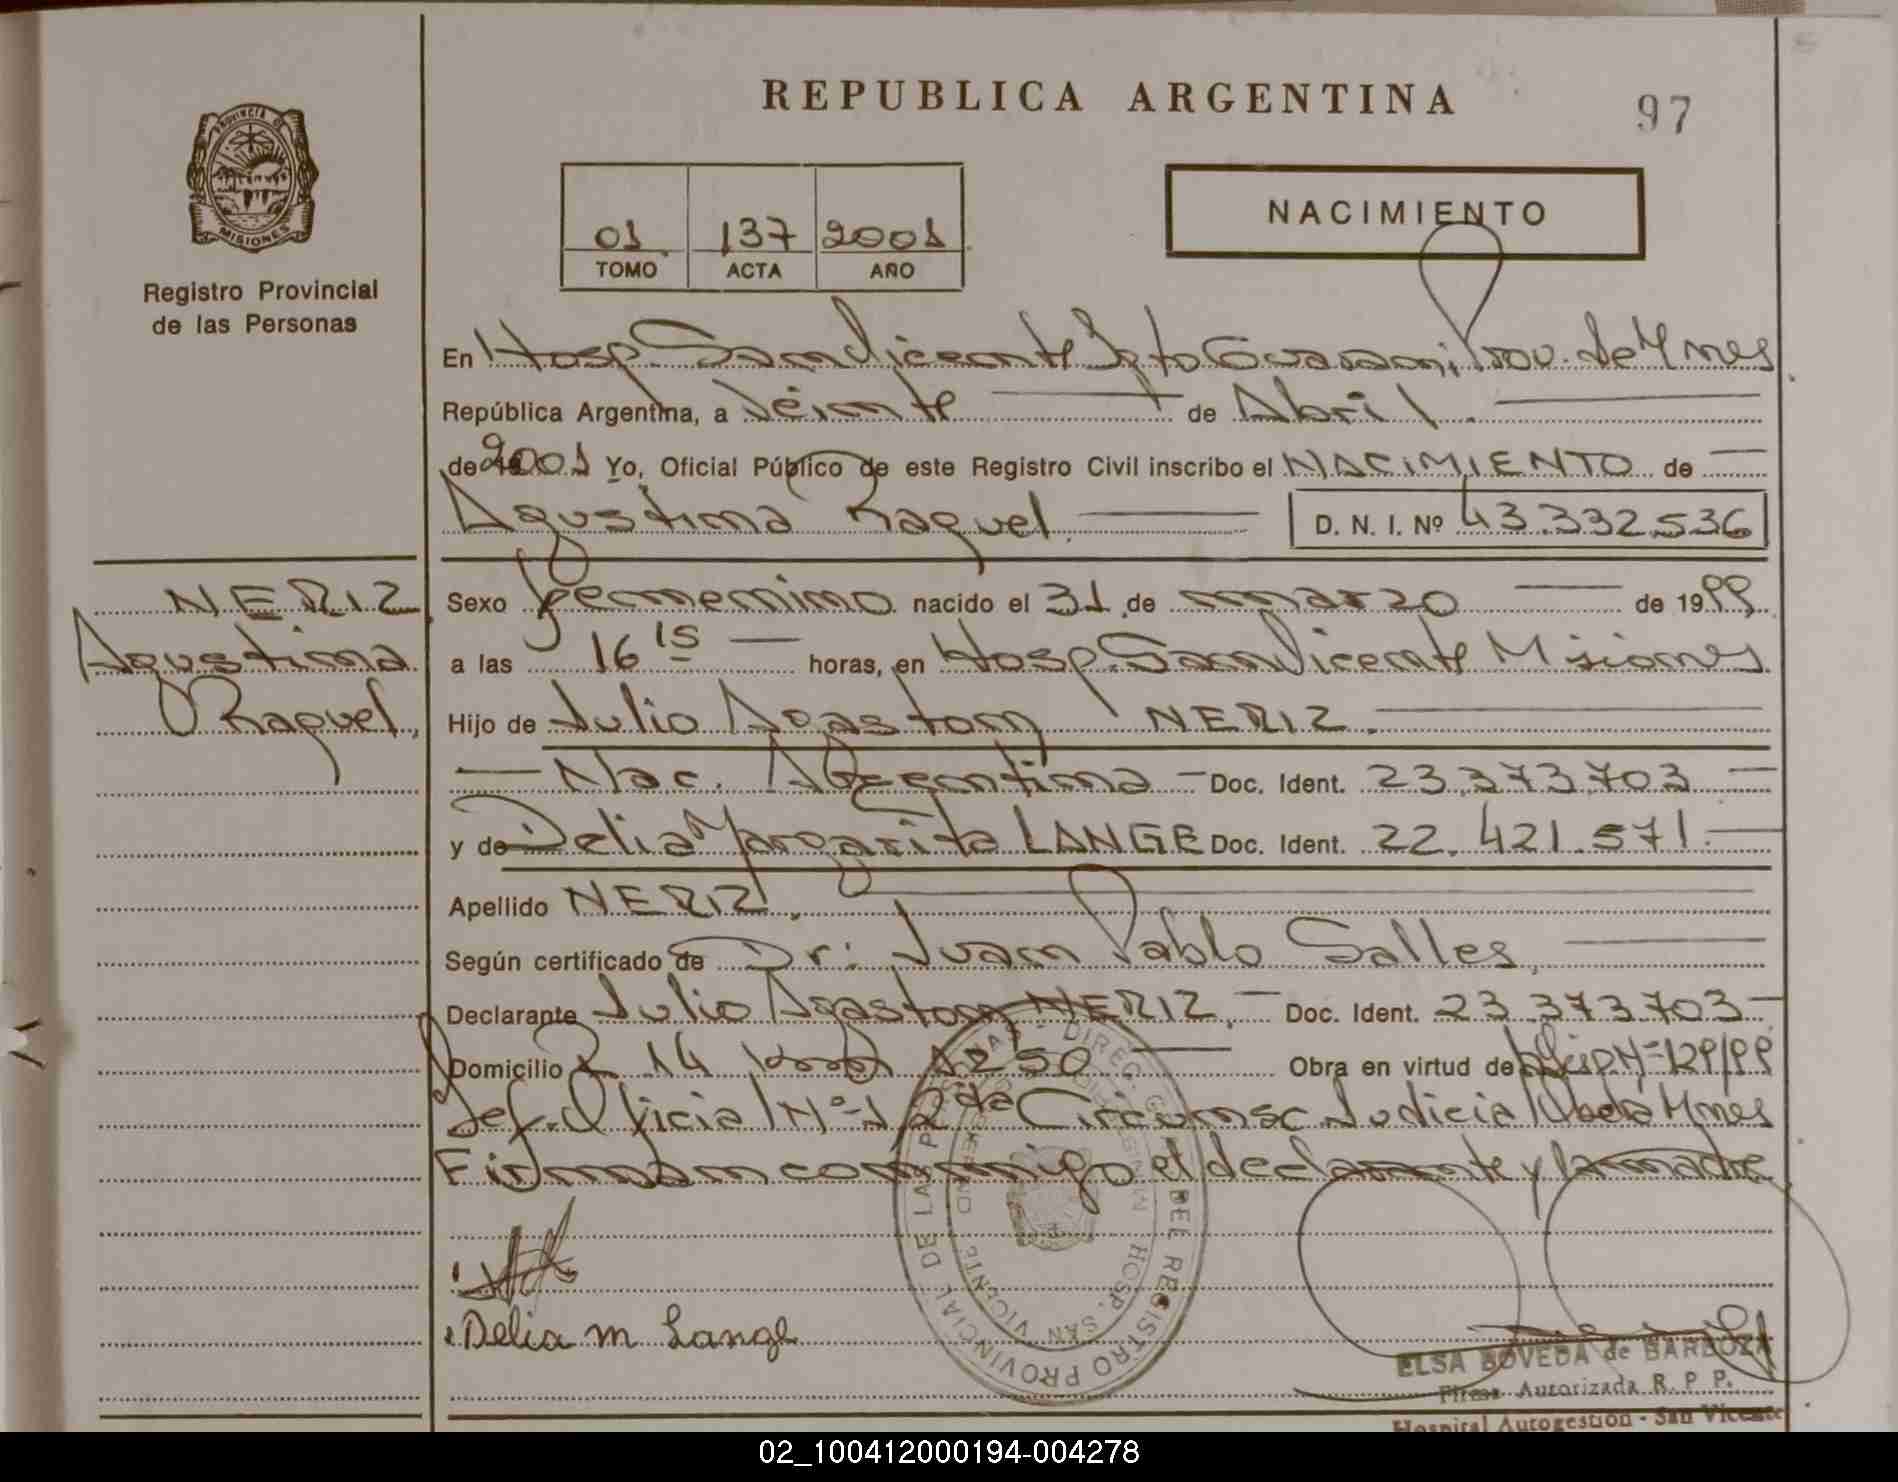 REPUBLICA ARGENTINA
97
PROVINCIA DE
MISIONES
Registro Provincial
de las Personas
01 137 2001
TOMO ACTA AÑO
NACIMIENTO
En Hosp. San Vicente Dpto Guarani Prov. de Mnes
República Argentina, a Veinte de Abril
de 2001 Yo, Oficial Público de este Registro Civil inscribo el NACIMIENTO de
Agustina Raquel D. N. I. Nº 43.332.536
NERIZ
Agustina
Raquel
Sexo femenino nacido el 31 de marzo de 1999
a las 16 15 horas, en Hosp. San Vicente Misiones
Hijo de Julio Agaston NERIZ
Nac. Argentina Doc. Ident. 23.373.703
y de Delia Margarita LANGE Doc. Ident. 22.421.571
Apellido NERIZ
Según certificado de Dr: Juan Pablo Salles
Declarante Julio Agaston NERIZ Doc. Ident. 23.373.703
Domicilio R 14 1250 Obra en virtud de Nº 129/99
Def. Oficial Nº 1 2da Circunsc. Judicial Oberá Mnes
Firman conmigo el declarante y la madre
Delia M Lange
DIREC. GRAL DEL REGISTRO PROVINCIAL DE LAS PERSONAS
HOSP. SAN VICENTE
ELSA BOVEDA de BARBOZA
Firma Autorizada R. P. P.
Hospital Autogestión - San Vicente
02_100412000194-004278